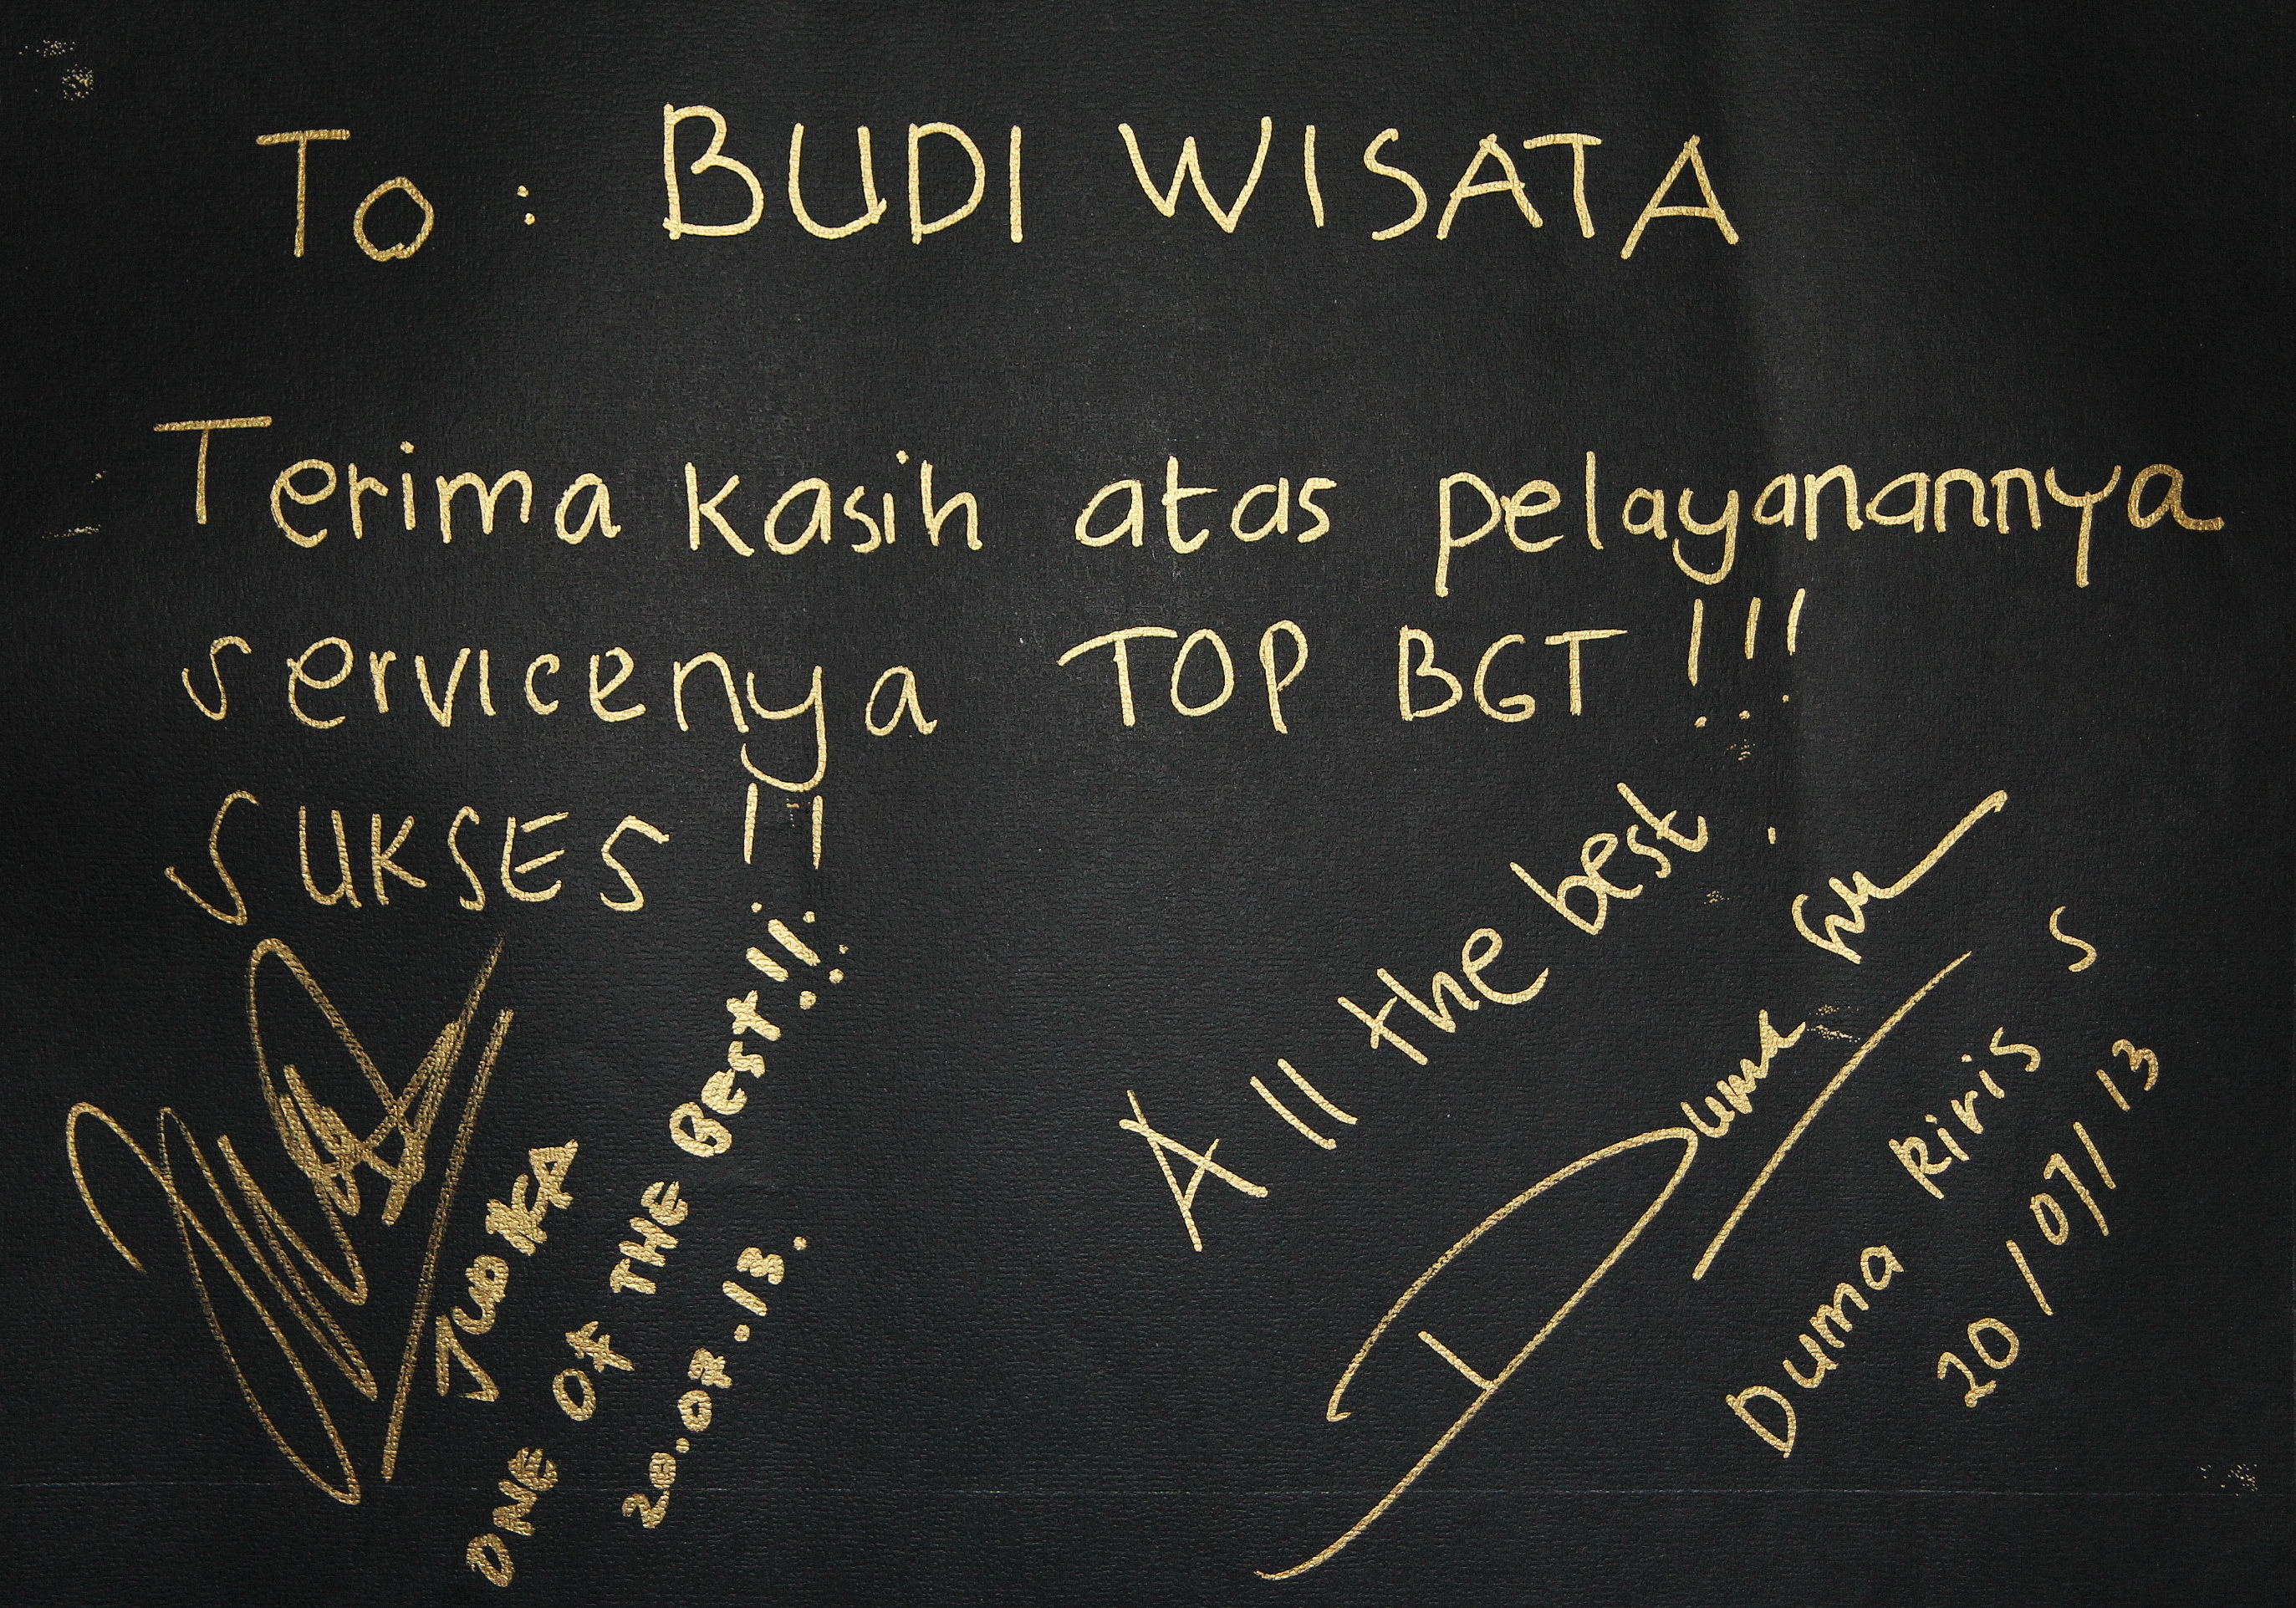 To : BUDI WISATA
Terima kasih atas pelayanannya
servicenya TOP BGT !!!
SUKSES !!
All the best
Duma
Duma Riris S
20/07/13
ONE OF THE BEST!!!
20.07.13.